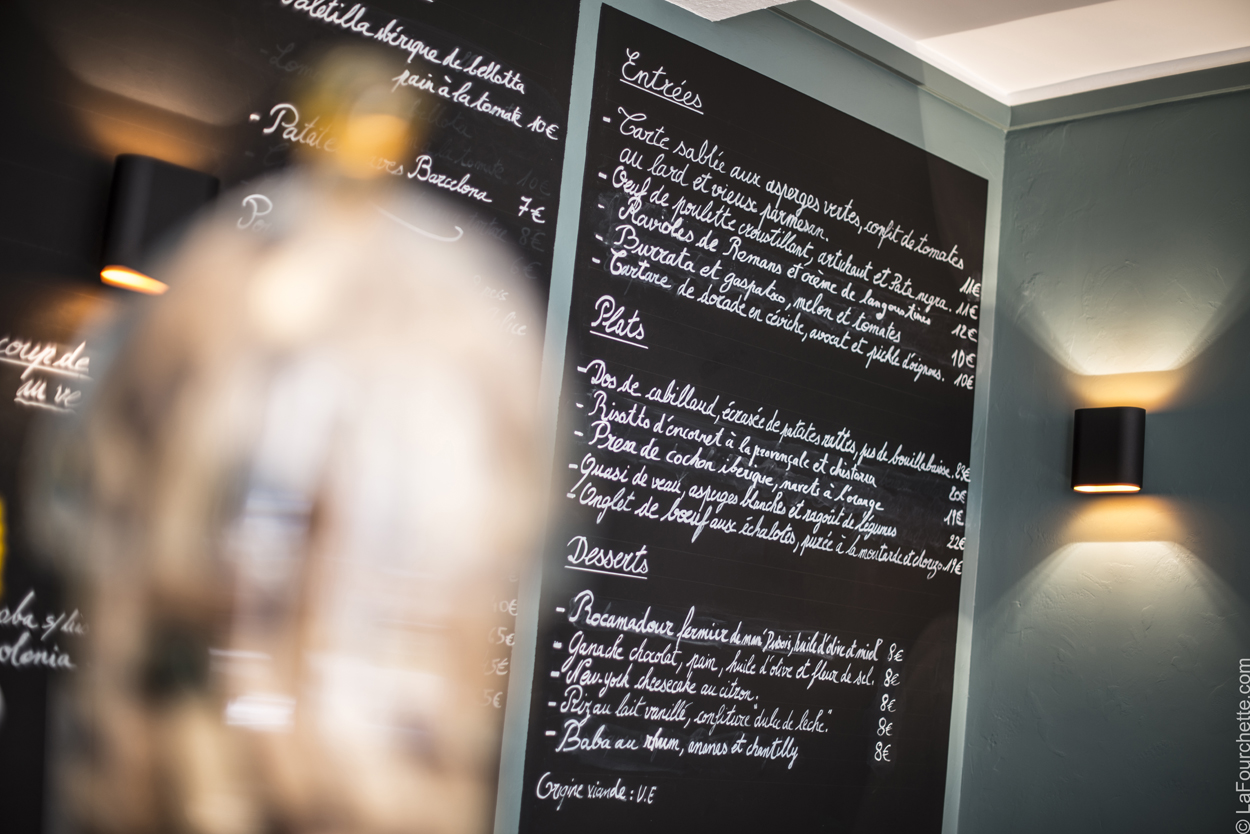 Paletilla ibérique de bellotta
pain à la tomate 10€
- Patatas Barcelona 7€
coup de
aba s/
olonia
Entrées
- Tarte sablée aux asperges vertes, confit de tomates
au lard et vieux parmesan. 11€
- Oeuf de poulette croustillant, artichaut et Pata negra. 11€
- Ravioles de Romans et crème de langoustines 12€
- Burrata et gaspatxo, melon et tomates 10€
- Tartare de dorade en céviche, avocat et pickle d'oignons. 10€
Plats
- Dos de cabillaud, écrasée de patates rattes, jus de bouillabaisse. 23€
- Risotto d'encornet à la provençale et chistorra 20€
- Presa de cochon ibérique, navets à l'orange 19€
- Quasi de veau, asperges blanches et ragoût de légumes 22€
- Onglet de boeuf aux échalotes, purée à la moutarde et chorizo. 19€
Desserts
- Rocamadour fermier huile d'olive et miel 8€
- Ganache chocolat, pain, huile d'olive et fleur de sel. 8€
- New york cheesecake au citron. 8€
- Riz au lait vanillé, confiture "dulce de leche". 8€
- Baba au rhum, ananas et chantilly 8€
Origine viande : U.E
© LaFourchette.com